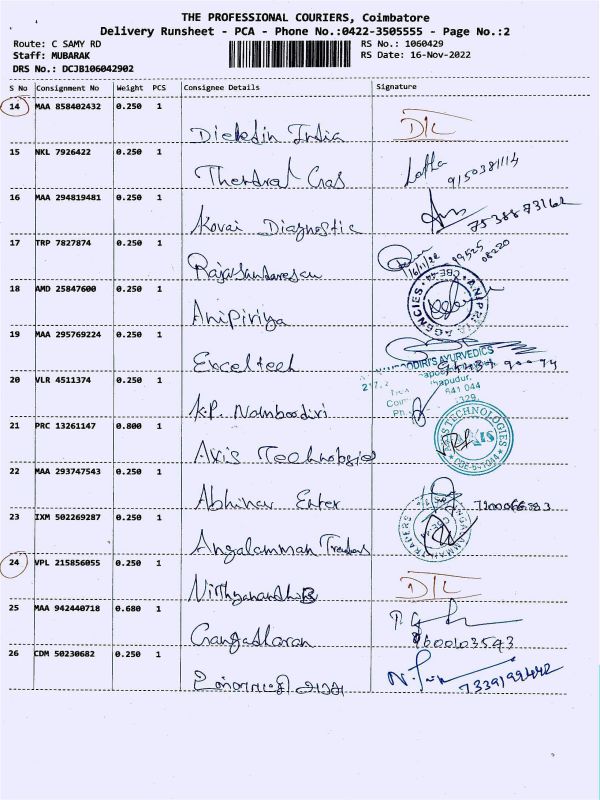 THE PROFESSIONAL COURIERS, Coimbatore
Delivery Runsheet - PCA - Phone No.:0422-3505555 - Page No.:2
Route: C SAMY RD RS No.: 1060429
Staff: MUBARAK RS Date: 16-Nov-2022
DRS No.: DCJB106042902
S No Consignment No Weight PCS Consignee Details Signature
14 MAA 858402432 0.250 1
India D/L
15 NKL 7926422 0.250 1
Thendral Gas Latha 9150381114
16 MAA 294819481 0.250 1
Kovai Diagnostic
17 TRP 7827874 0.250 1
16/11/22
18 AMD 25847600 0.250 1
Anipiriya ANIPRIYA AGENCIES CBE-44
19 MAA 295769224 0.250 1
Exceltech
20 VLR 4511374 0.250 1
NAMBOODIRI'S AYURVEDICS
641 044
K.P. Namboodiri
21 PRC 13261147 0.800 1
Axis Technologies AXIS TECHNOLOGIES
22 MAA 293747543 0.250 1
Abhinav Enter
23 IXM 502269287 0.250 1
Angalamman Traders
24 VPL 215856055 0.250 1
D/L
25 MAA 942440718 0.680 1
Gangadharan 9600103543
26 CDM 50230682 0.250 1